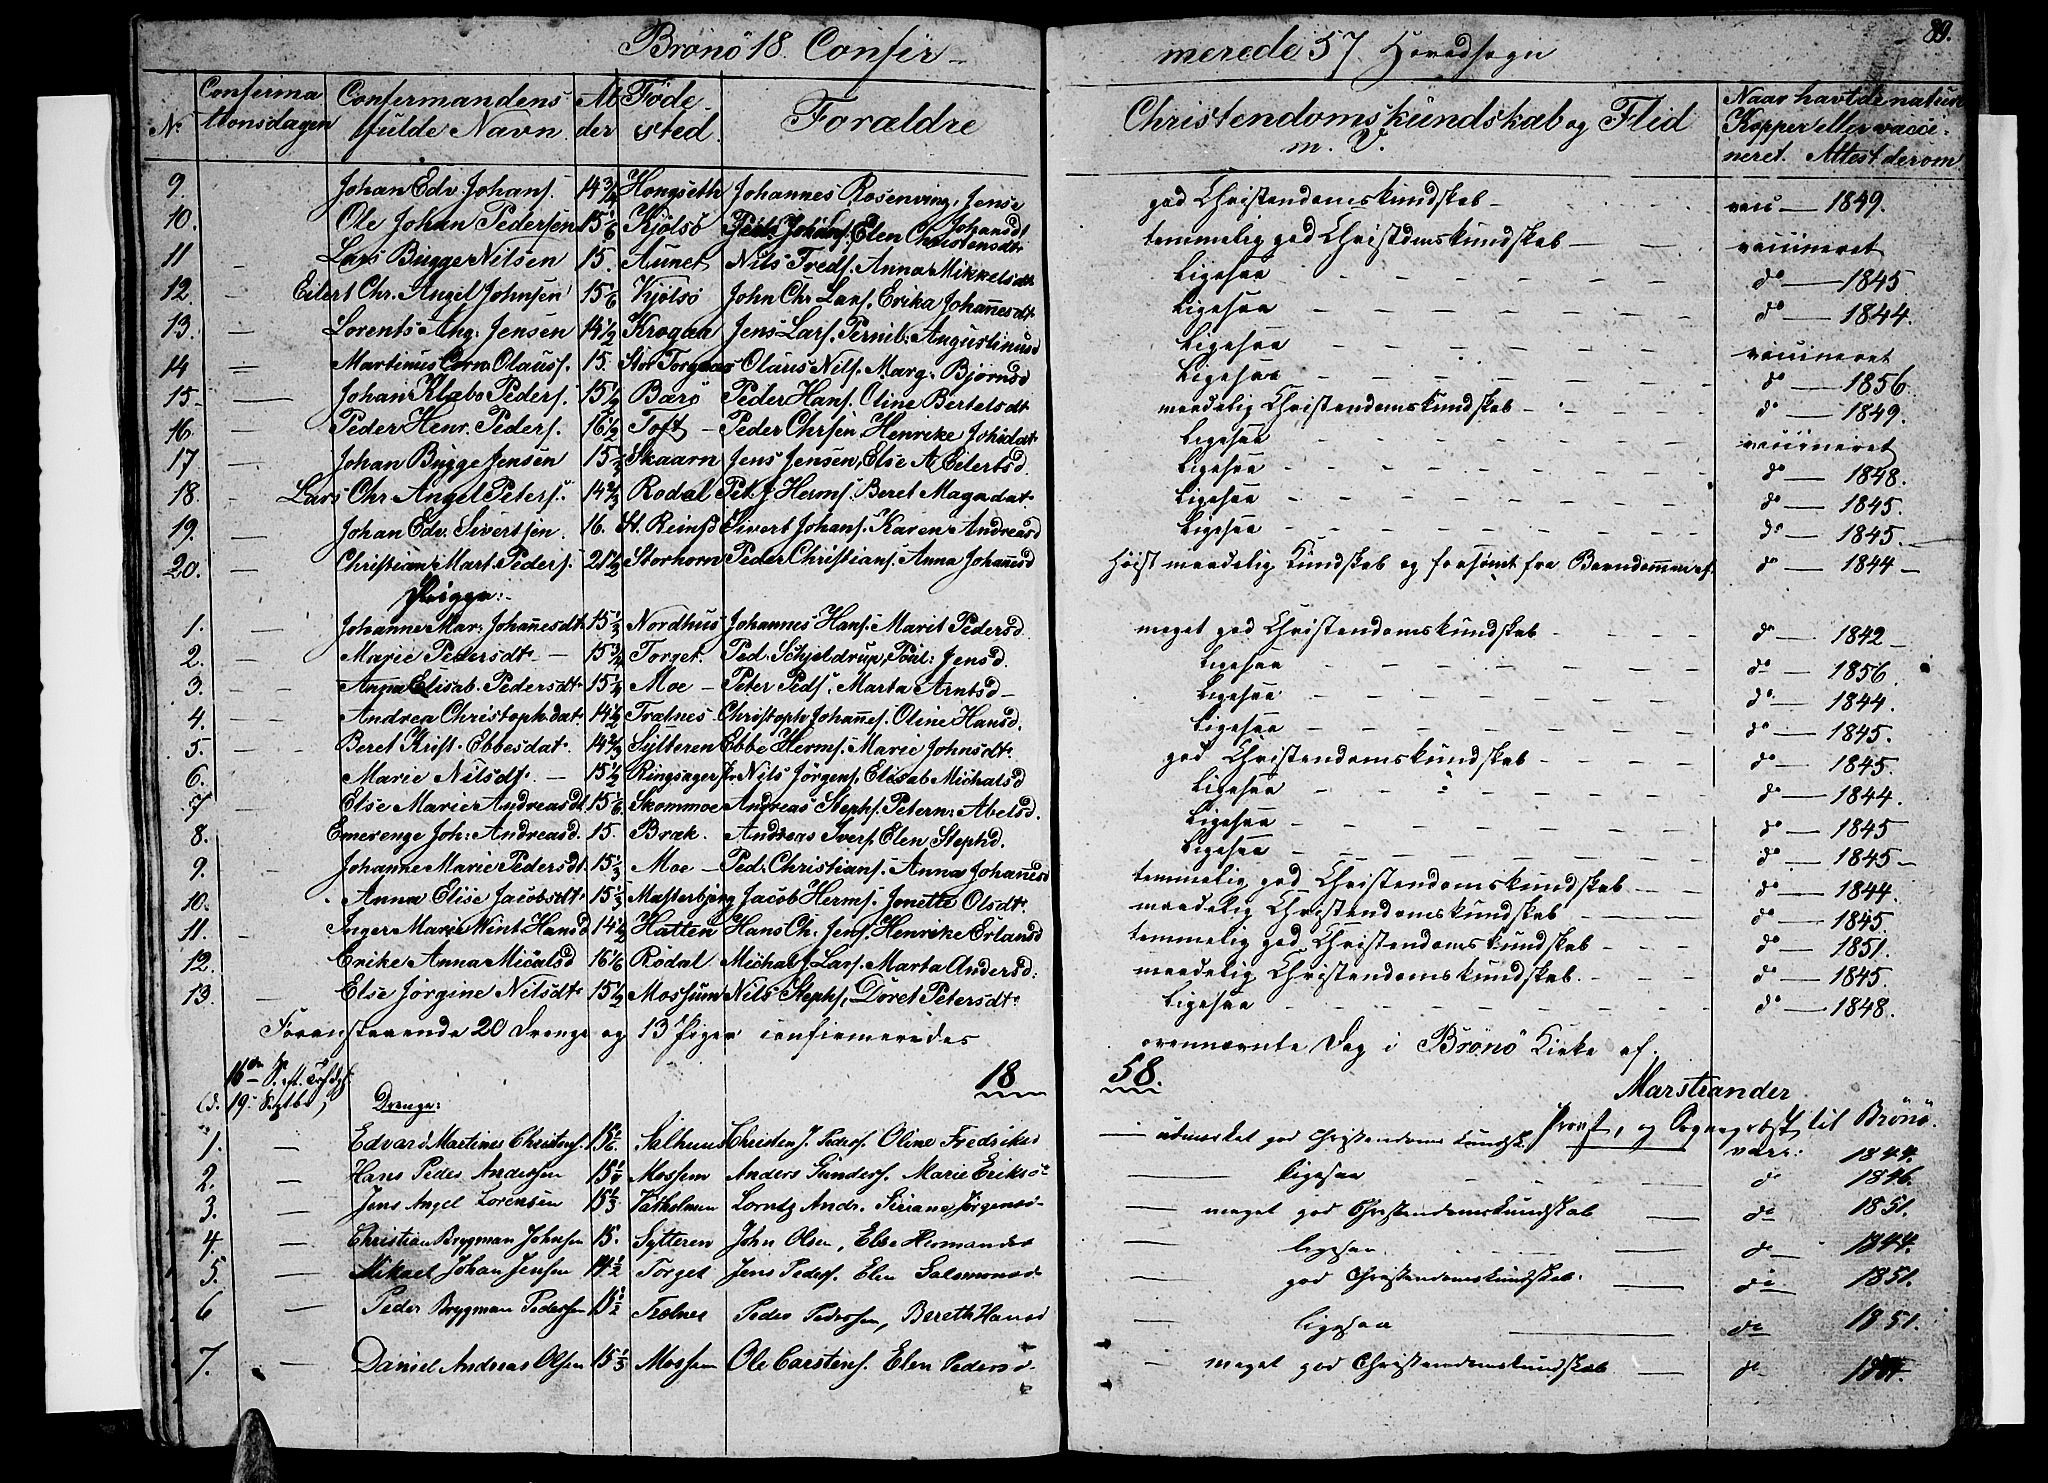 89.
Brönö 18 Confir- merede 57 Hovedsogn
No Confirmationsdagen Confermandens fulde Navn Alder Fødested Forældre Christendomskundskab og Flid m. V. Naar havt de naturl Kopper eller vaccineret. Attest derom
9. Johan Edv. Johans. 14 3/4 Hongseth Johannes Rosenving, Jense Johansdt god Christendomskundskab - vacc - 1849.
10. Ole Johan Pedersen 15 1/6 Kjölsö Johans. Elen Christensdt temmelig god Christdmskundskab - vaccineret
11 Lars Bugge Nilsen 15. Aunet Nils Freds. Anna Mikkelsdt Ligesaa do - 1845
12. Eilert Chr. Angel Johnsen 15 1/6 Kjölsö John Chr Lars. Erika Johannesdt Ligesaa do - 1844.
13. Lorents Ang: Jensen 14 1/2 Krogaa Jens Lars. Pernil: Augustinusd Ligesaa vaccineret
14 Martinus Corn. Olauss. 15. Stor Torgnes Olaus Nils. Marg. Bjornsd Ligesaa do - 1856.
15 Johan Klæbo Peders. 15 1/2 Barö Peder Hans. Oline Bertelsdt maadelig Christendomskundskab - do - 1849.
16. Peder Henr. Peders. 16 1/2 Toft - Peder Chrsen, Henrike Johsdat Ligesaa vaccineret
17 Johan Bugge Jensen Skaarn Jens Jensen, Else A Eilertsd. Ligesaa do - 1848.
18. Lars Chr Angel Peters. 14 2/3 Rodal Pet. J Herms. Beret Magndat. Ligesaa do - 1845.
19. Johan Edv. Sivertsen. 16. St. Reinsd Sivert Johans. Karen Andreasd Ligesaa do - 1845.
20. Christian Mart. Peders. 21 1/2 Storhorn Peder Christians. Anna Johanesd Höist maadelig Kundskab og forsömt fra Barndommen af. do - 1844 -
Piger:
1. Johanne Mar: Johannesdt. 15 1/3 Nordhus Johannes Hans. Marit Pedersd. meget god Christendomskundskab do - 1842 -
2. Marie Pedersdt. - 15 3/4 Torget. Ped. Schjeldrup, Poul: Jensd. Ligesaa do - 1856
3. Anna Elisab. Pedersdt 15 1/4 Moe - Peter Peds, Marta Arntsd - Ligesaa do - 1844.
4. Andrea Christoph.dat. 14 1/2 Trælnes Christoph Johannes. Oline Hansd. Ligesaa do - 1845.
5. Beret Krist. Ebbesdat. 14 2/3 Sylteren Ebbe Herms. Marie Johnsdt. god Christendomskundskab - do - 1845.
6. Marie Nilsdt. - 15 1/2 Ringsager Nils Jörgens. Elisab Michalsd Ligesaa do - 1844.
7 Else Marie Andreasdt 15 1/6 Skommoe Andreas Stephs. Petern: Abelsd. Ligesaa do - 1845
8. Emerenge Joh: Andreasd. 15. Bræk. Andreas Ivers. Elen Stephd. Ligesaa do - 1845 -
9. Johanne Marie Pedersdt 15 1/3 Moe - Ped. Christians. Anna Johannesd temmelig god Christendomskundskab - do - 1844.
10. Anna Elise Jacobsdt. 15 1/3 Masterbjerg Jacob Herms. Jonette Olsdt. maadelig Christendomskundskab - do - 1845.
11. Inger Marie Wint Hansd 14 1/2 Hatten Hans Ch. Jens. Henrike Erlandsd temmelig god Christendomskundskab - do - 1851.
12. Erike Anna Micalsd 16 1/6 Rodal Michal J Lars. Marta Andersd: maadelig Christendomskundskab. do - 1845.
13. Else Jörgine Nilsdt. 15 1/2 Mossum Nils Stephs, Doret Petersdt. Ligesaa do - 1848.
Foranstaaende 20 Drenge og 13 Piger confirmeredes ovennævnte Dag i Brönö Kirke af.
18 58. Marstrander
16de S. d. 19. Septbr, Drenge: Provst, og Sognepræst til Brönö.
1. - Edvard Martinus Christens. 15 1/6 Salhuus Christen J. Peders. Oline Fredriksd - udmærket god Christendoms Kundsk. vacc: 1844.
2. - Hans Peder Andersen 15 1/4 Mossem Anders Gunders. Marie Eriksd - ligesaa do 1846.
3. - Jens Angel Lorensen 15 1/3 Vatholmen Lorntz Andr. Siriane Jörgensd - meget god Christendomskundskab - do 1851.
4. - Christian Brygman Johnsen 15. Sylteren John Olsen, Ebbe Hermansdr - ligesaa do 1844.
5. - Mikael Johan Jensen 14 1/2 Torget Jens Peders. Elen Salomonsd - god Christendomskundskab. do 1851.
6 - Peder Brygman Pedersen 15 1/2 Trælnes Peder Pedersen, Bereth Hansd - ligesaa - do 1851.
7. - Daniel Andreas Olsen 15 1/3 Mossem Ole Carstens. Elen Pedersd. - meget god Christendomskundskab - do